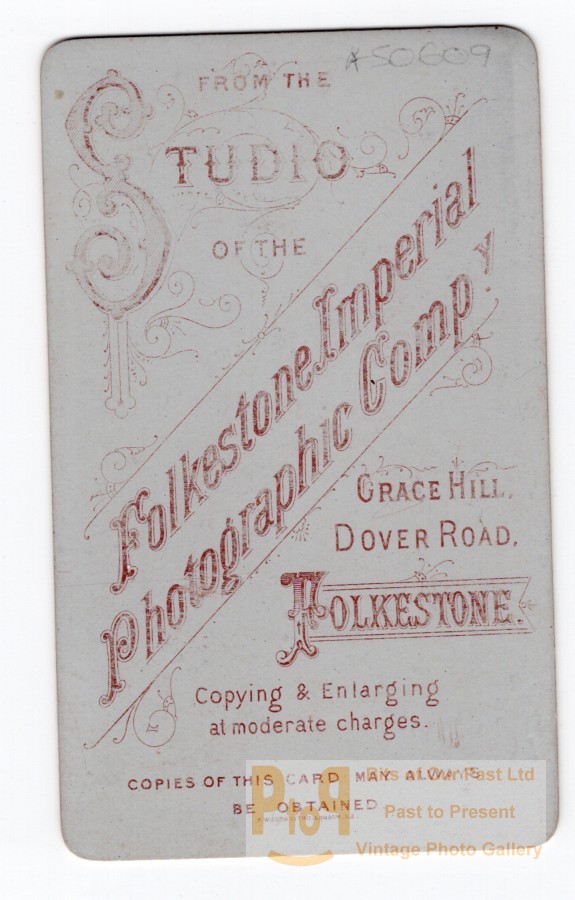 A50609
FROM THE
STUDIO
OF THE
Folkestone Imperial
Photographic Compy
GRACE HILL,
DOVER ROAD,
FOLKESTONE.
Copying & Enlarging
at moderate charges.
COPIES OF THIS CARD MAY ALWAYS
BE OBTAINED
PToP
Bits of Our Past Ltd
Past to Present
Vintage Photo Gallery